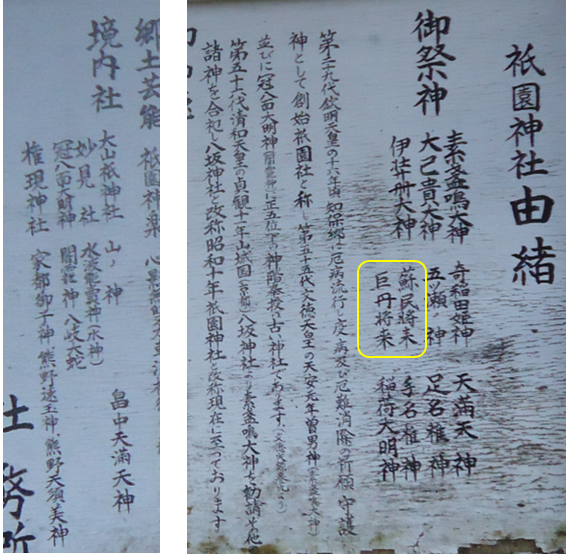 祇園神社由緒
御祭神
素盞鳴大神 奇稲田姫神 天満天神
大己貴大神 五ノ瀬ノ神 足名椎神
伊弉册大神 蘇民将来 手名椎神
巨丹将来 稲荷大明神
第二十九代欽明天皇の
厄病流行し疫病及び厄難消除の祈願守護
神として創始祇園社と称し第五十五代文徳天皇の天安元年曽男神
並びに冠八面大明神 に正五位下の神階奉授の古い神社であります
第五十六代清和天皇の貞観十一年山城国 八坂神社より素盞鳴大神を勧請し其他
諸神を合祀し八坂神社と改称昭和十年祇園神社と改称現在に至っております
郷土芸能 祇園神楽 心影無
境内社
大山祇神社 山ノ神 畠中天満天神
妙見社 水波能賣神(水神)
冠八面大明神 闇罔神 八岐大蛇
権現神社 家都御子神 熊野速玉神 熊野夫須美神
社務所